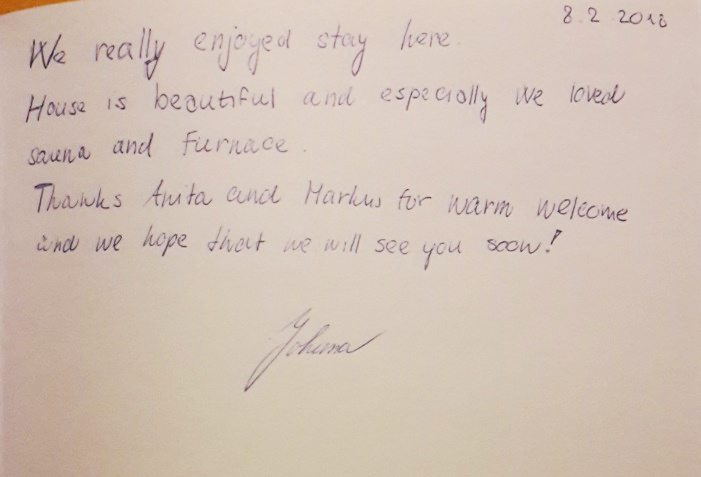 8.2.2018
We really enjoyed stay here.
House is beautiful and especially we loved
sauna and furnace.
Thanks Anita and Markus for warm welcome
and we hope that we will see you soon!
Johana